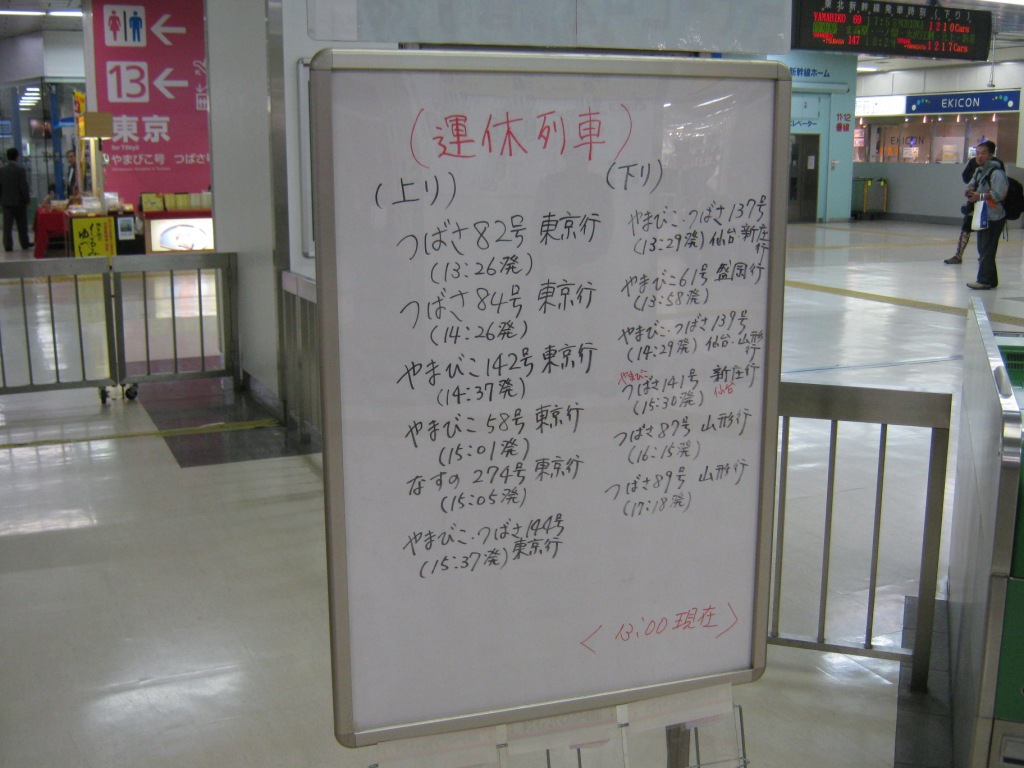 (運休列車)
(上り)
つばさ82号 東京行
(13:26発)
つばさ84号 東京行
(14:26発)
やまびこ142号 東京行
(14:37発)
やまびこ58号 東京行
(15:01発)
なすの274号 東京行
(15:05発)
やまびこ・つばさ144号
(15:37発)東京行
(下り)
やまびこ・つばさ137号
(13:29発)仙台 新庄行
やまびこ61号 盛岡行
(13:58発)
やまびこ・つばさ139号
(14:29発)仙台・山形行
やまびこ
つばさ141号 新庄行
仙台
(15:30発)
つばさ87号 山形行
(16:15発)
つばさ89号 山形行
(17:18発)
<13:00現在>
13
東京
for Tokyo
やまびこ号 つばさ
YAMABIKO 69
1210Cars
147
1217Cars
新幹線ホーム
11・12
番線
EKICON
EKICON